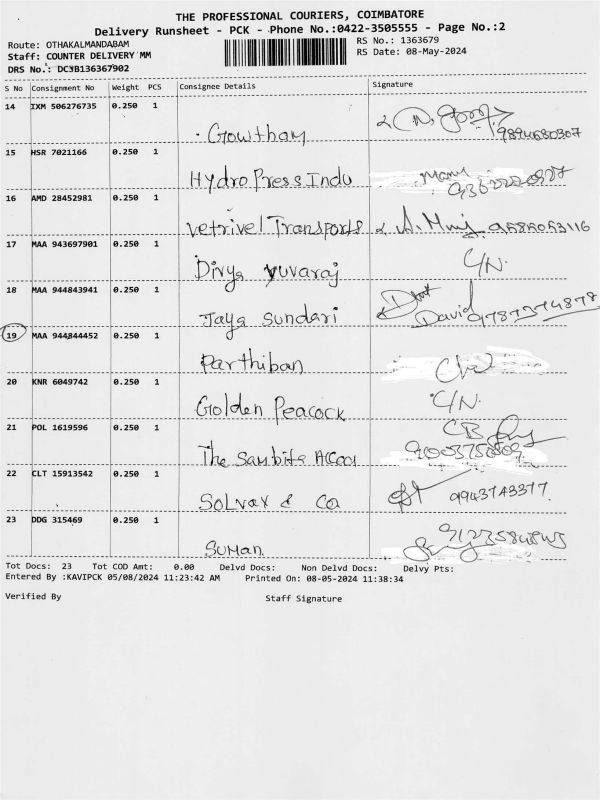 THE PROFESSIONAL COURIERS, COIMBATORE
Delivery Runsheet - PCK - Phone No.:0422-3505555 - Page No.:2
Route: OTHAKALMANDABAM RS No.: 1363679
Staff: COUNTER DELIVERY MM RS Date: 08-May-2024
DRS No.: DC3B136367902
S No Consignment No Weight PCS Consignee Details Signature
14 IXM 506276735 0.250 1
Gowtham 9894680307
15 HSR 7021166 0.250 1
Hydro Press Indu
16 AMD 28452981 0.250 1
Vetrivel Transports 9585053116
17 MAA 943697901 0.250 1
Divya Yuvaraj C/N.
18 MAA 944843941 0.250 1
Jaya Sundari David 9787374878
19 MAA 944844452 0.250 1
Parthiban
20 KNR 6049742 0.250 1
Golden Peacock C/N.
21 POL 1619596 0.250 1 CB
The Sambits Accou
22 CLT 15913542 0.250 1
Solvax & Co 9943743377.
23 DDG 315469 0.250 1
Suman.
Tot Docs: 23 Tot COD Amt: 0.00 Delvd Docs: Non Delvd Docs: Delvy Pts:
Entered By :KAVIPCK 05/08/2024 11:23:42 AM Printed On: 08-05-2024 11:38:34
Verified By Staff Signature